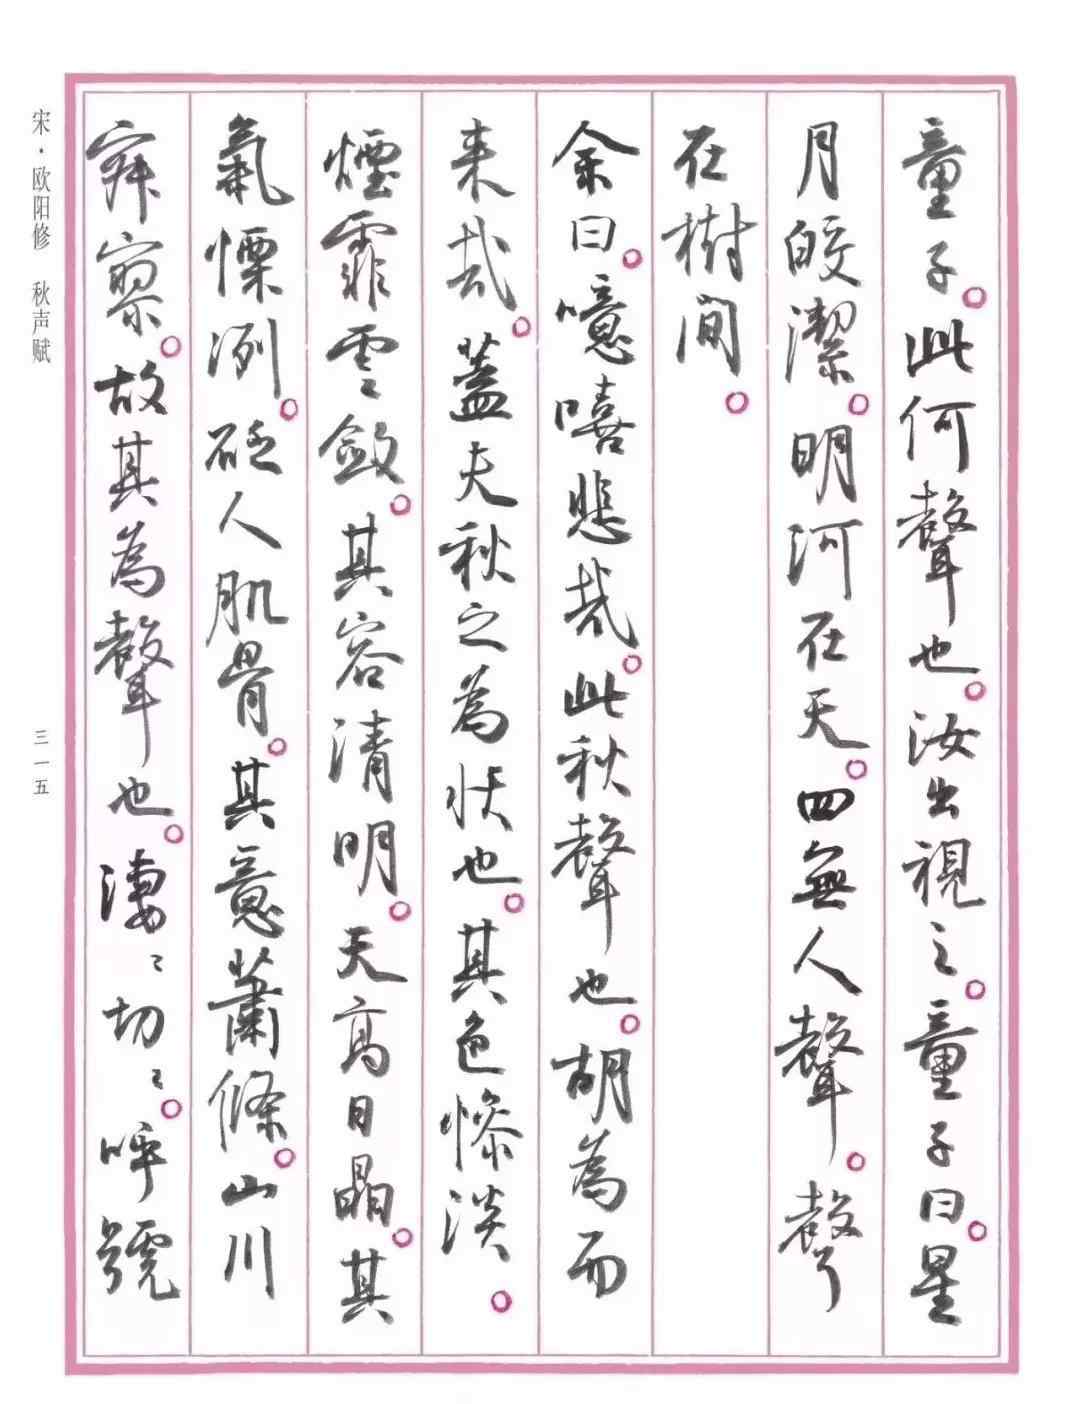 童子。此何聲也。汝出視之。童子曰。星
月皎潔。明河在天。四無人聲。聲
在樹間。
余曰。噫嘻悲哉。此秋聲也。胡為而
来哉。蓋夫秋之為狀也。其色慘淡。
煙霏雲斂。其容清明。天高日晶。其
氣慄冽。砭人肌骨。其意蕭條。山川
寂寥。故其為聲也。淒〻切〻。呼號
宋·欧阳修 秋声赋
三一五